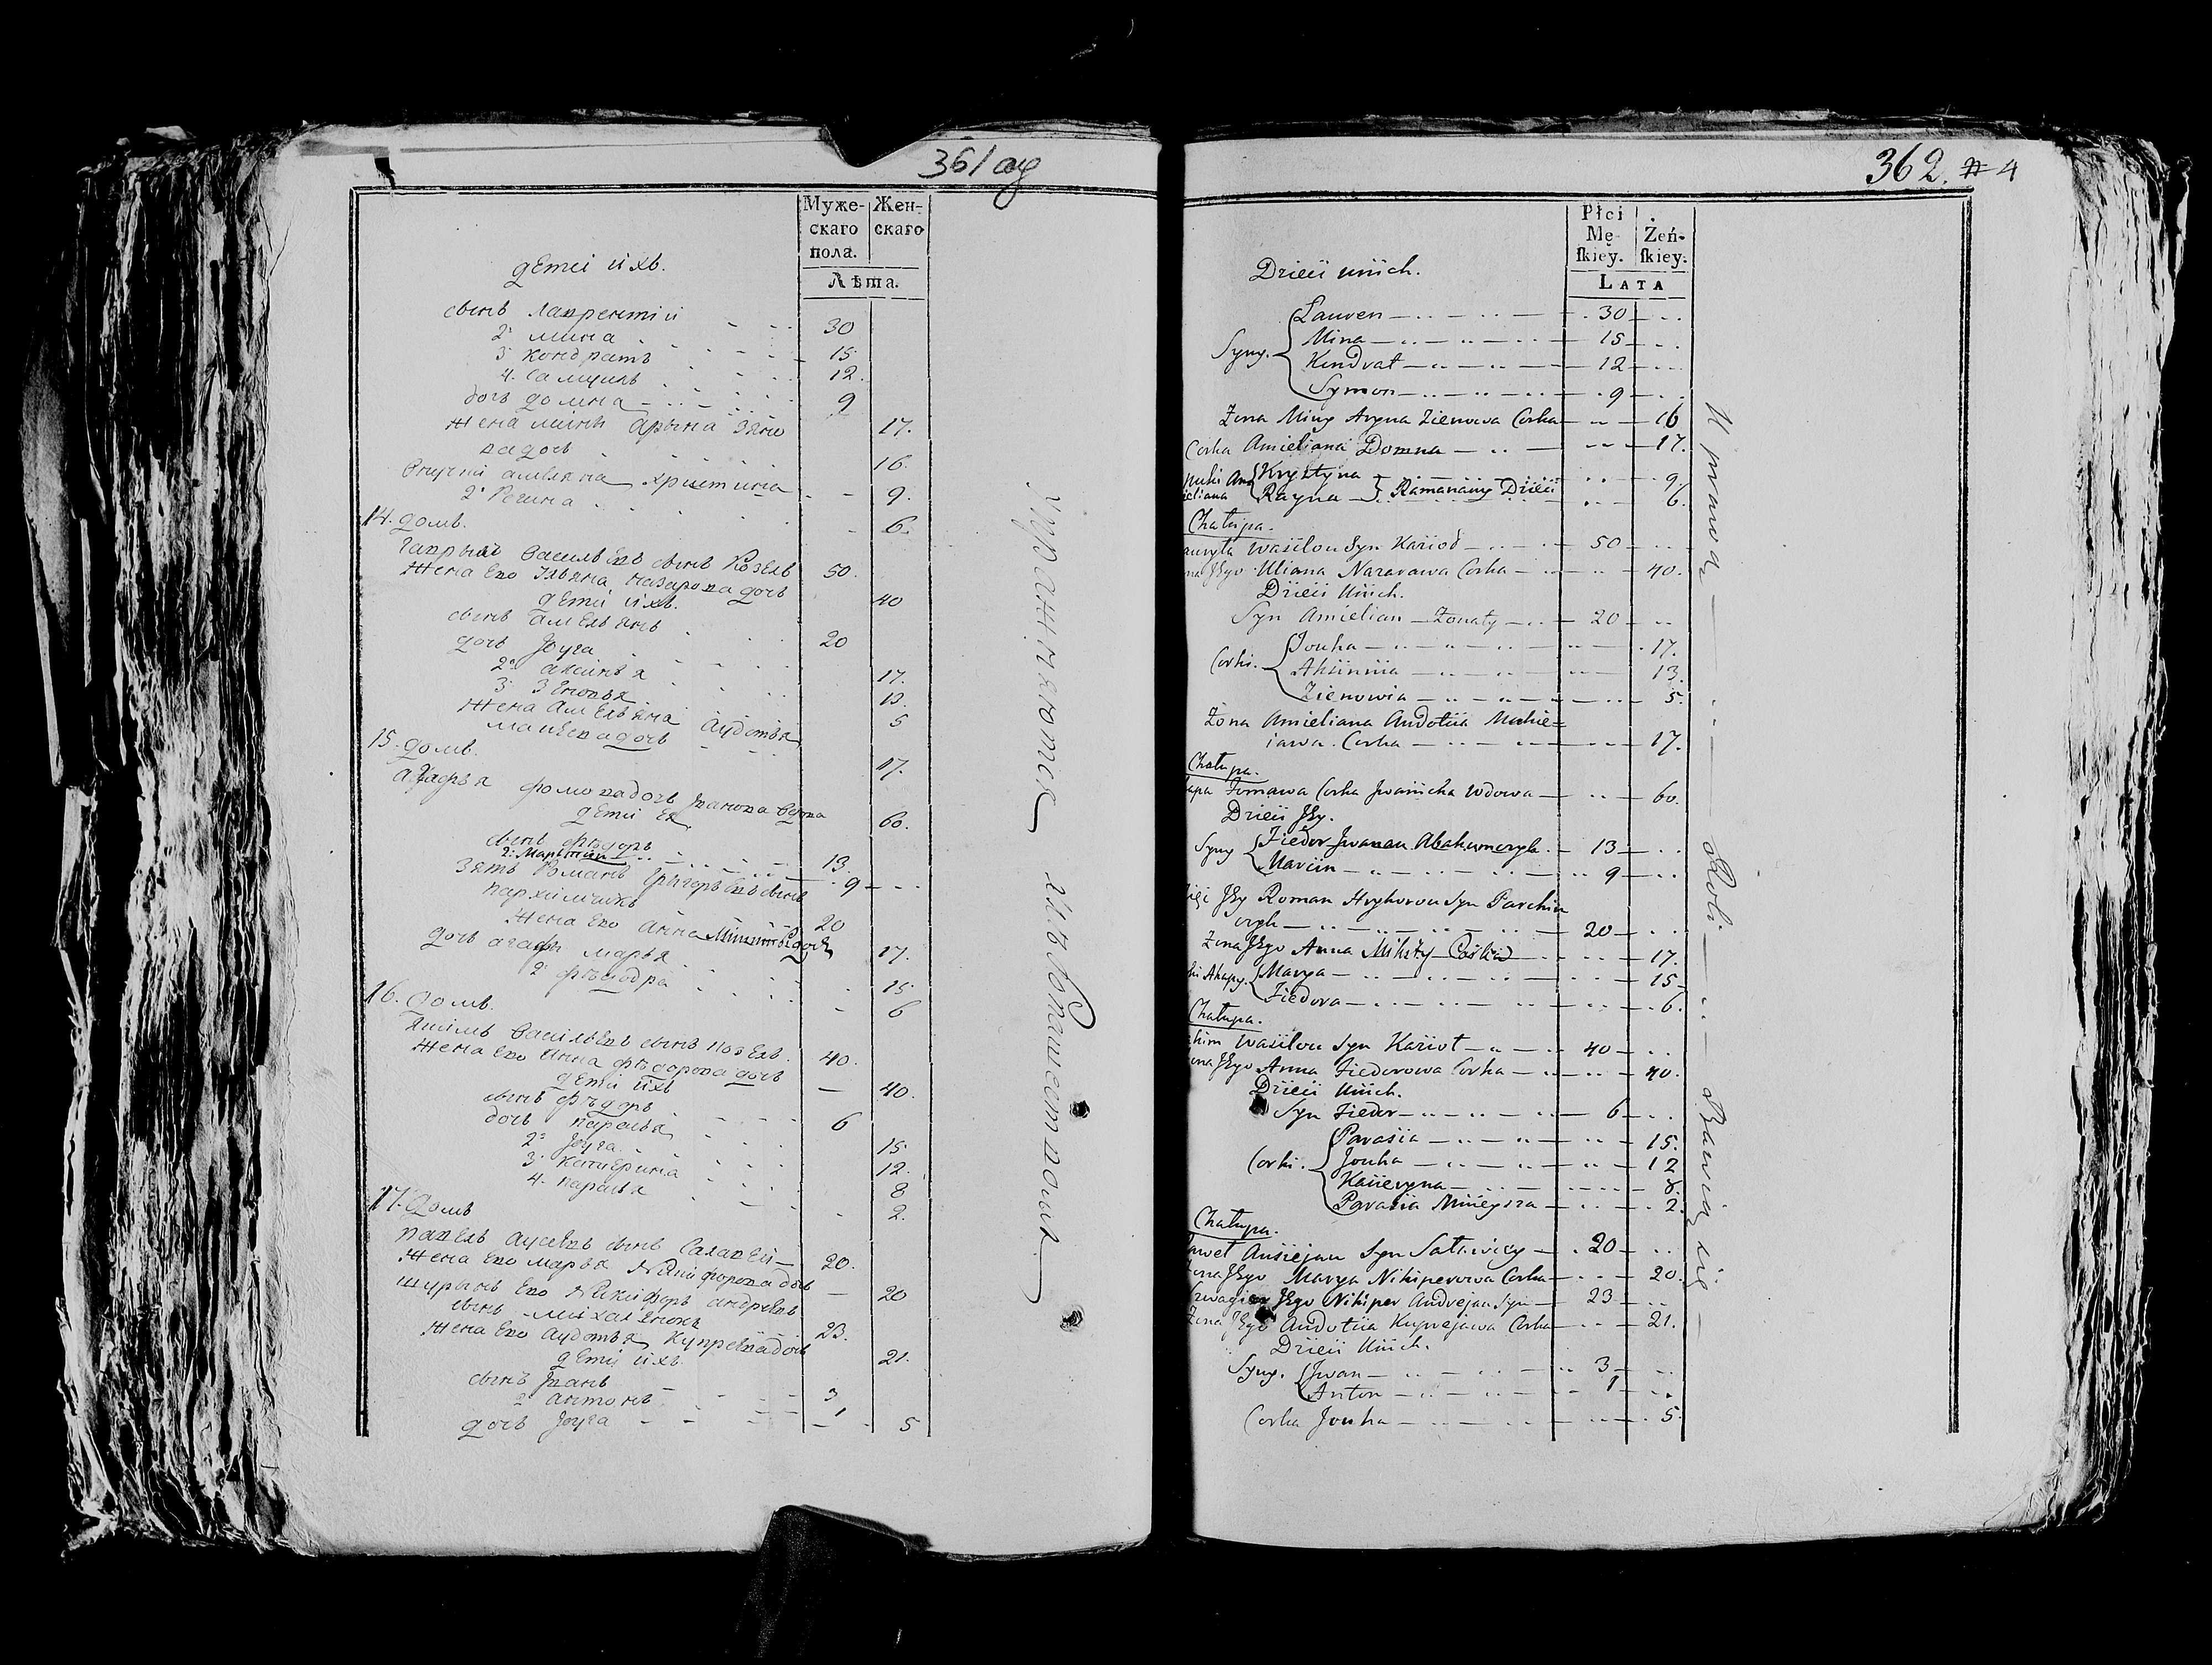 361 об
Муже-
скаго
пола.
Жен-
скаго
Лѣта.
дети ихъ.
сынъ Лаврентій 30
2 мина 15
3 Кондратъ 12.
4. Самуилъ 9
дочь домна 17.
жена мины Арына Зѣно
вадочь 16.
внучки амеляна христина 9.
2 Регина 6.
14. домъ.
Гаврыло Васильевъ сынъ Козелъ 50.
жена Ево Ульяна назарова дочь 40
дети ихъ.
сынъ амельянъ 20
дочь Јоуга 17.
2 аксинья 13.
3 Зеновья 5
жена амельяна Аудотья
матвеевадочь 17.
15. домъ.
агафья фомовадочь Јванова вдова 60.
дети Ея
сынъ фѣдоръ 13.
2. Мартинъ 9
зять Романъ Грыгорьевъ сынъ
пархимчикъ 20
жена Ево анна дочь 17.
дочь агафьи марья 15
2 фѣодора 6
16. домъ.
Якимъ Васильевъ сынъ козелъ. 40.
жена Ево Анна фѣдорова дочь 40.
дети ихъ
сынъ фѣдоръ 6
дочь параська 15
2 Јоуга 12.
3 Катерина 8
4. параська 2.
17. Домъ
павелъ аусеевъ сынъ Салавей 20.
жена Ево марья Никифорова дочь 20
шурынъ Ево Никифоръ андреевъ
сынъ михаленокъ 23.
жена Ево аудотья Купреевадочь 21.
дети ихъ.
сынъ Јванъ 3
2 антонъ 1
дочь Јоуга 5
Упражняются хлебопашествомъ
362. 4
Płci
Mę-
ſkiey.
Żeń-
ſkiey.
LATA
Dzieci unich.
Syny. Lauren 30
Mina 15
Kondrat 12
Symon 9
Zona Miny Aryna Zienowa Corka 16
Corka Amieliana Domna 17.
Krystyna 9.
Rayna Ramanawy Dzieci 6.
Chałupa.
auryła Wasilou Syn Kozioł 50
na Jego Uliana Nazarawa Corka 40.
Dzieci Unich.
Syn Amielian Zonaty 20
Corki. Jouha 17.
Aksinnia 13.
Zienowia 5.
Zona Amieliana Audotia Mackie-
jawa Corka 17.
Chałupa.
apa Tomawa Corka Jwanicha Wdowa 60.
Dzieci Jey.
Syny Fiedor Jwanau 13
Marcin 9
Jey Roman Hryhorou Syn Parchim
czyk 20
Zona Jego Anna Mikity Corka 17.
ki Ahapy. Marya 15
Fiedora 6.
Chałupa.
kim Wasilou Syn Kozioł 40
ona Jego Anna Fiedorowa Corka 40.
Dzieci Unich.
Syn Fiedor 6
Corki. Parasia 15.
Jouha 12
Kacieryna 8.
Parasia Mnieysza 2.
Chałupa.
aweł Ausiejau Syn Saławiey 20
ona Jego Marya Nikiperowa Corka 20.
zwagier Jego Nikiper Andrejau Syn 23
Zona Jego Audotia Kuprejawa Corka 21.
Dzieci Unich.
Syny. Jwan 3
Anton 1
Corka Jouha 5.
Uprawą Roli Bawią się